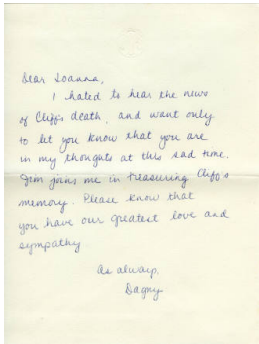 Dear Joanna,
I hated to hear the news
of Cliff's death, and want only
to let you know that you are
in my thoughts at this sad time.
Jim joins me in treasuring Cliff's
memory. Please know that
you have our greatest love and
sympathy
As always,
Dagny